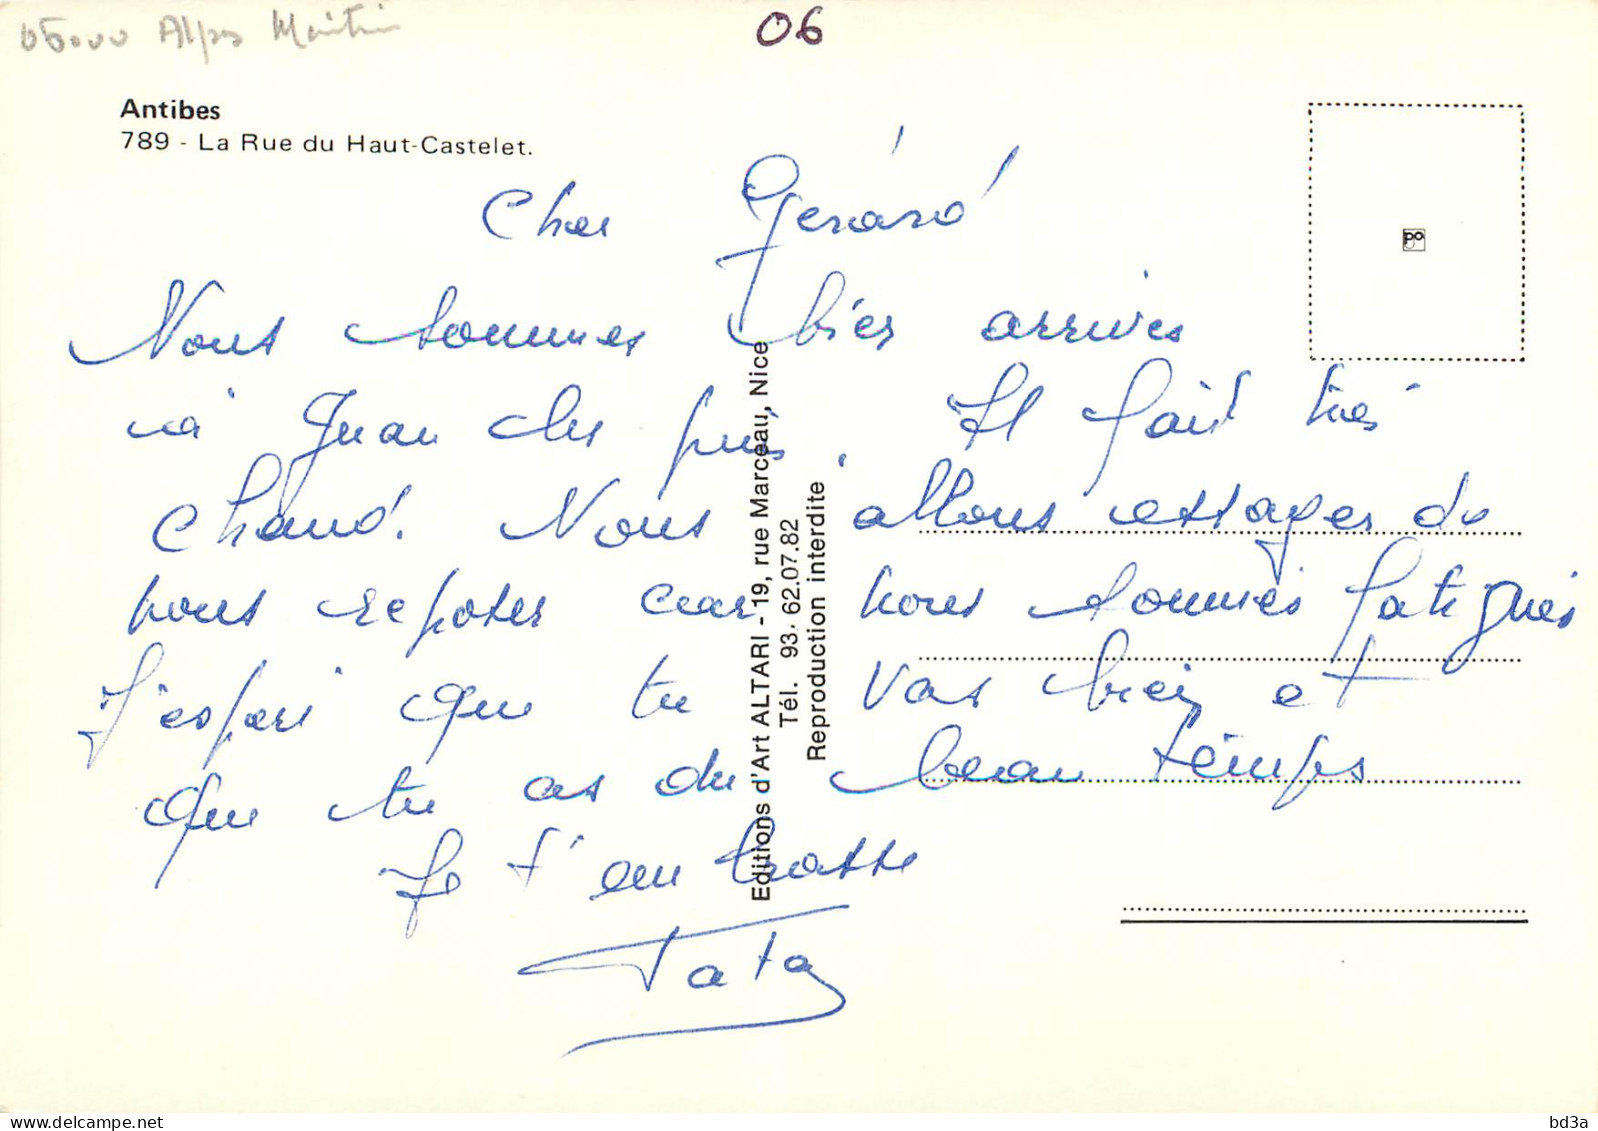 06000 Alpes Maritim
06
Antibes
789 - La Rue du Haut-Castelet.
Cher Gérard
Nous sommes bien arrivés
à Juan les pins. Il fait trés
chaud. Nous allons essayer de
nous reposer car nous sommes fatigués
J'espère que tu vas bien et
que tu as du beau temps
Je t'embrasse
Tata
Editions d'Art ALTARI - 19, rue Marceau, Nice
Tél. 93. 62.07.82
Reproduction interdite
bd3a